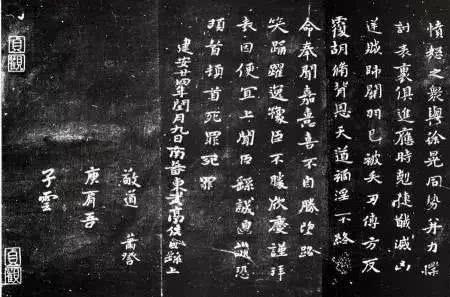 憤怒之衆與徐晃同勢并力撲
討表裏俱進應時剋捷馘滅凶
逆賊帥關羽已被矢刃傅方反
覆胡脩背恩天道禍淫不終
命奉聞嘉憙喜不自勝望路
笑踊躍逸豫臣不勝欣慶謹拜
表因便宜上聞臣繇誠惶誠恐
頓首頓首死罪死罪
建安廿四年閏月九日南蕃東武亭侯臣繇上
敬道
庾肩吾
子雲
貞觀
貞觀